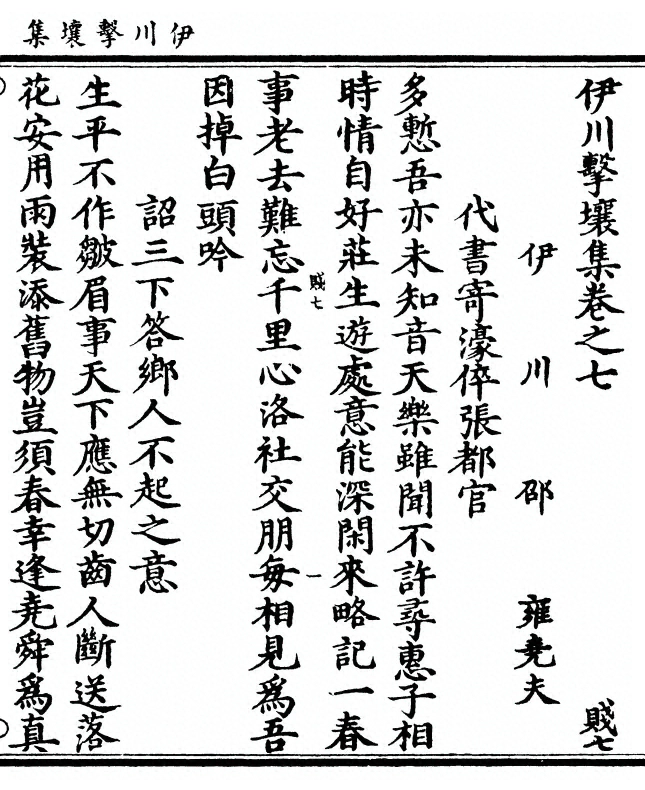 伊川擊壤集
伊川擊壤集卷之七
賤七
伊川邵雍堯夫
代書寄濠倅張都官
多慙吾亦未知音天樂雖聞不許尋惠子相
時情自好莊生遊處意能深閑來略記一春
事老去難忘千里心洛社交朋每相見爲吾
賤七
一
因掉白頭吟
詔三下答鄉人不起之意
生平不作皺眉事天下應無切齒人斷送落
花安用雨裝添舊物豈須春幸逢堯舜爲真